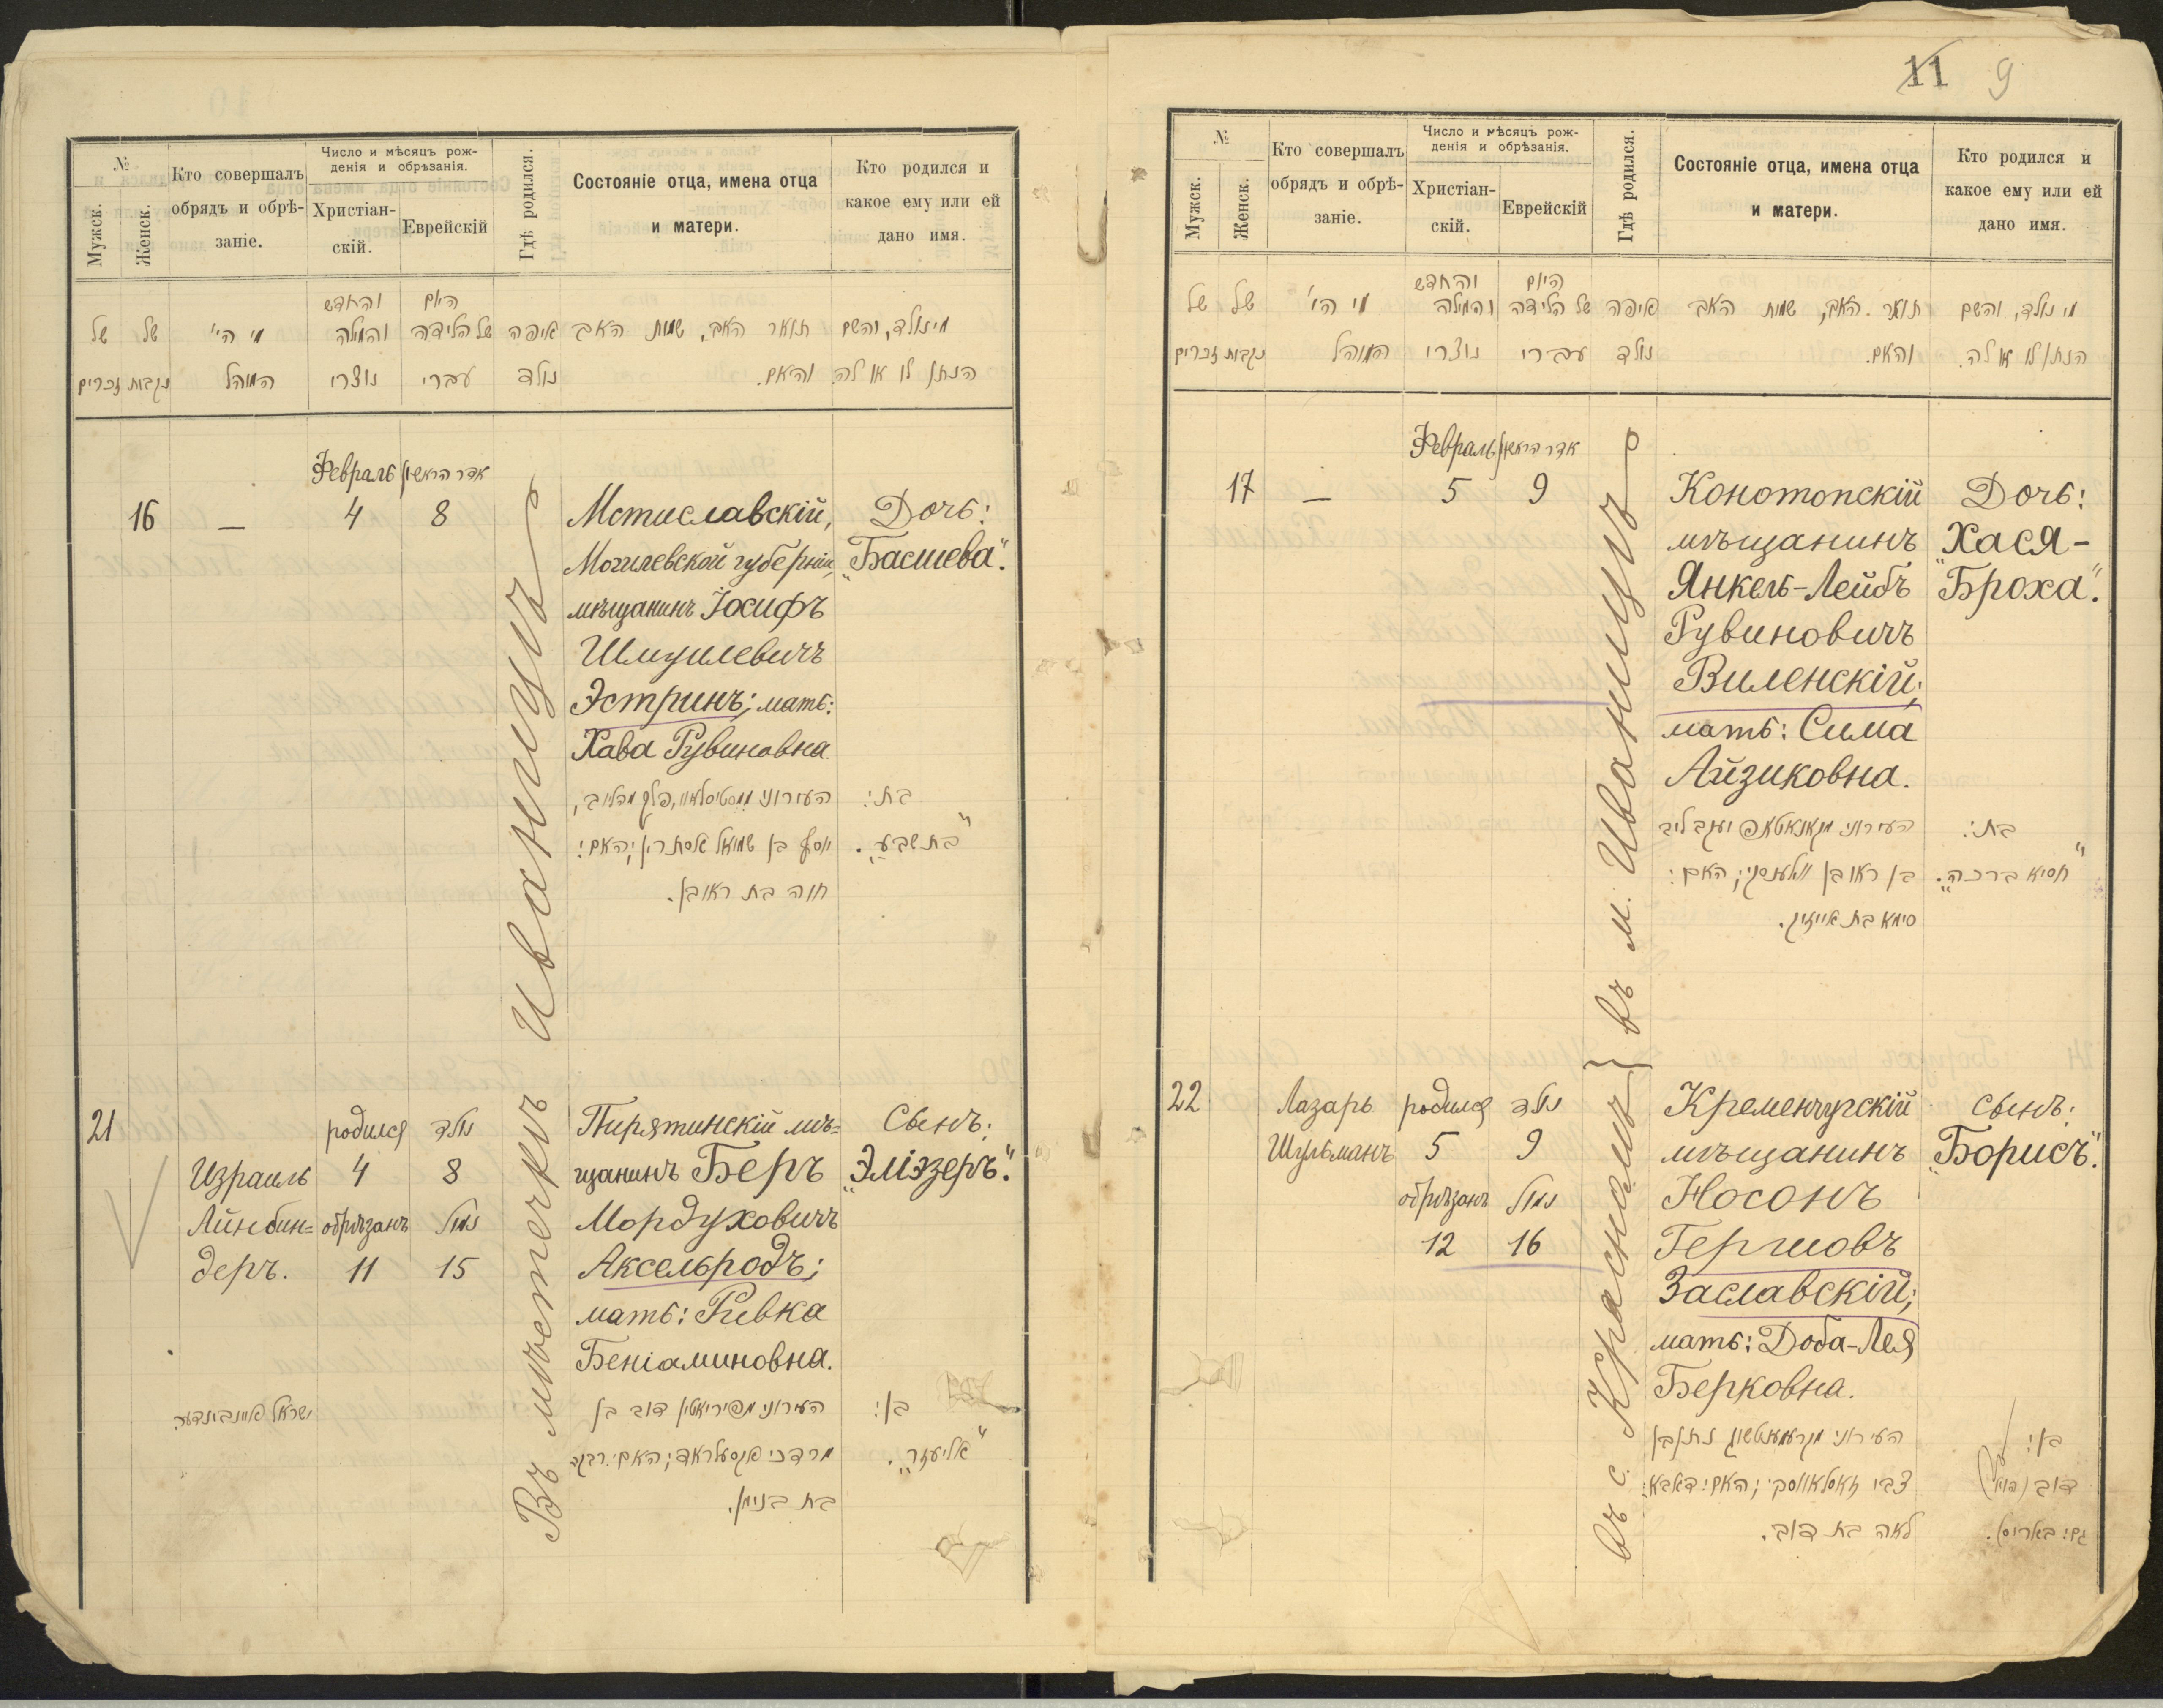 №
Мужск.
Женск.
Кто совершалъ
обрядъ и обрѣ-
заніе.
Число и мѣсяцъ рож-
денія и обрѣзанія.
Христіан-
скій.
Еврейскій
Гдѣ родился.
Состояніе отца, имена отца
и матери.
Кто родился и
какое ему или ей
дано имя.
והחדש היום
של של מי הי' והמילה של הלידה איפה תואר האב, שמות האב מי נולד, והשם
נקבות זכרים המוהל נוצרי עברי נולד והאם. הנתן לו או לה
Февраль אדר הראשון
16 — 4 8
Мстиславскій,
Могилевской губерніи,
мѣщанинъ Іосифъ
Шмуилевичъ
Эстринъ; мать:
Хава Рувиновна
Дочь:
„Басшева".
העירוני ממסטיסלאוו, פלך מהליוב,
יוסף בן שמואל אסתרין; האם:
חוה בת ראובן.
בת:
„בת שבע".
Въ мѣстечкѣ Иваницѣ
21
Израиль
Айнбин=
деръ.
родился נולד
4 8
обрѣзанъ נמול
11 15
Пирятинскій мѣ=
щанинъ Беръ
Мордуховичъ
Аксельродъ;
мать: Ривка
Беніаминовна.
Сынъ:
„Эліэзеръ".
ישראל איינבינדער
העירוני מפיריאטין דוב בן
מרדכי אקסעלראד; האם: רבקה
בת בנימן.
בן:
„אליעזר".
11 9
№
Мужск.
Женск.
Кто совершалъ
обрядъ и обрѣ-
заніе.
Число и мѣсяцъ рож-
денія и обрѣзанія.
Христіан-
скій.
Еврейскій
Гдѣ родился.
Состояніе отца, имена отца
и матери.
Кто родился и
какое ему или ей
дано имя.
והחדש היום
של של מי הי' והמילה של הלידה איפה תואר האב, שמות האב מי נולד, והשם
נקבות זכרים המוהל נוצרי עברי נולד והאם. הנתן לו או לה.
Февраль אדר הראשון
17 — 5 9
Конотопскій
мѣщанинъ
Янкель-Лейбъ
Рувиновичъ
Виленскій;
мать: Сима
Айзиковна.
Дочь:
„Хася-
Броха".
העירוני מקאנאטאפ יעקב ליב
בן ראובן ווילענסקי; האם:
סימא בת אייזיק.
בת:
„חסיא ברכה".
въ с. Красномъ} въ м. Иваницѣ
22
Лазарь
Шульманъ
родился נולד
5 9
обрѣзанъ נמול
12 16
Кременчугскій
мѣщанинъ
Носонъ
Гершовъ
Заславскій;
мать: Доба-Лея
Берковна.
сынъ:
„Борисъ".
העירוני מקרעמענטשוג נתן בן
צבי זאסלאווסקי; האם: דאבא
לאה בת דוב.
בן:
דוב